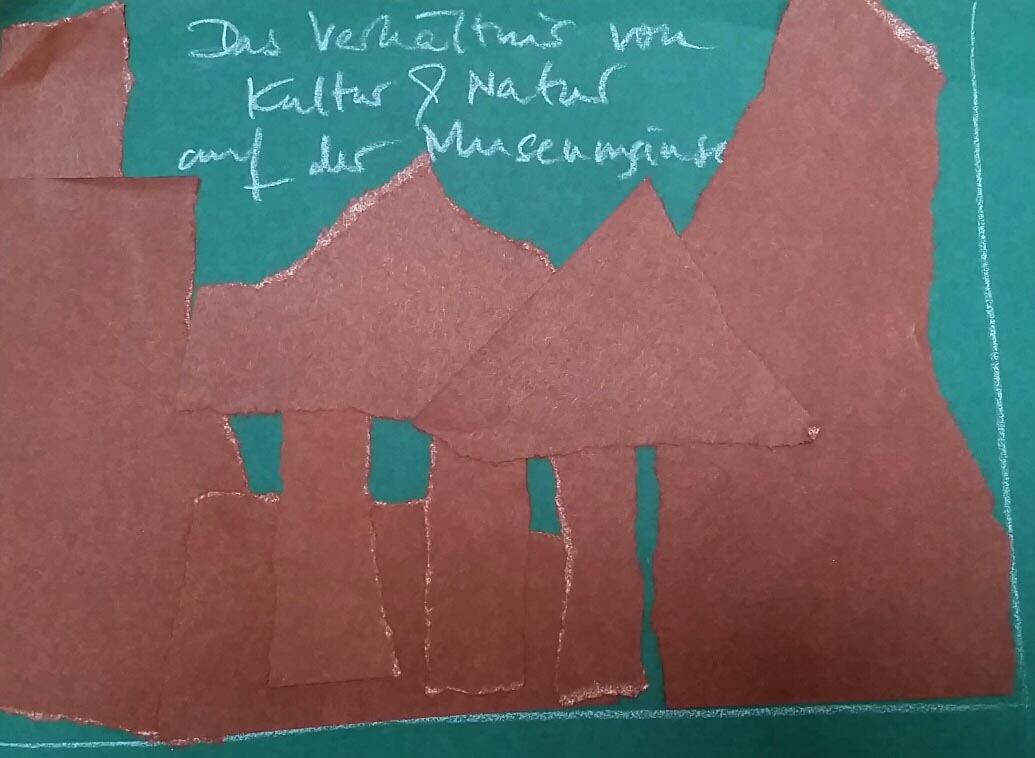 Das Verhältnis von
Kultur & Natur
auf der Museumsinse